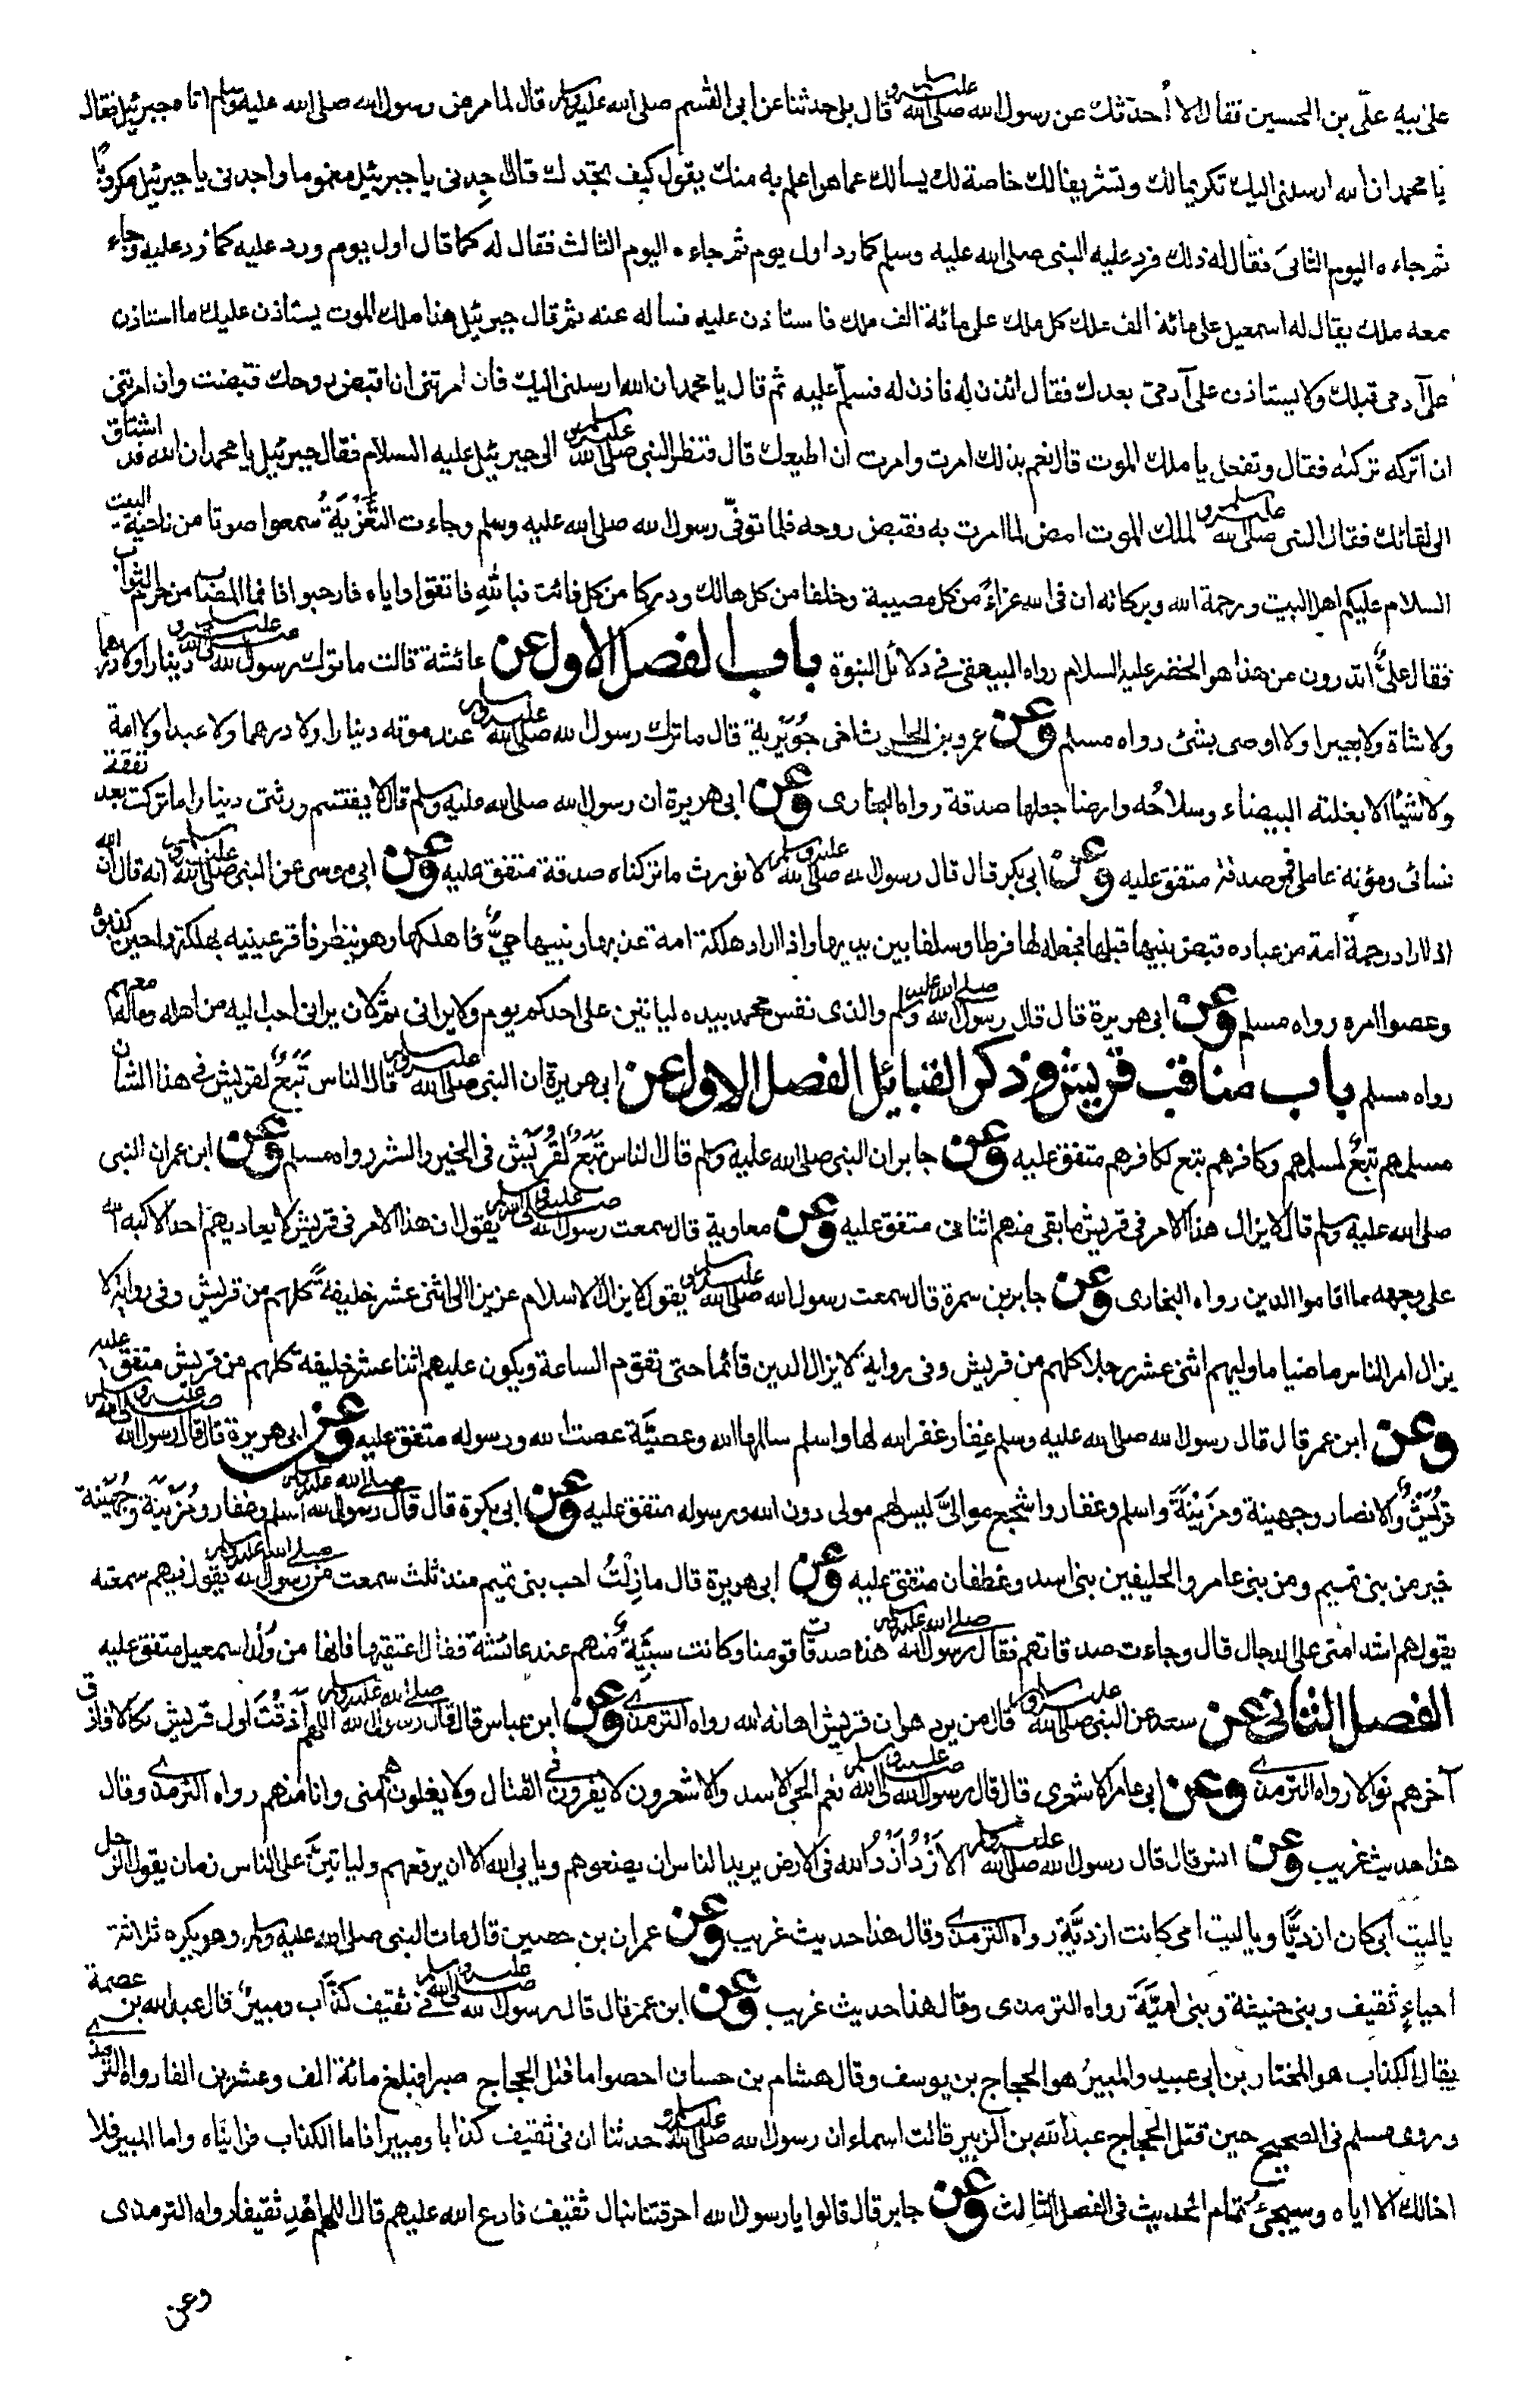 على ابيه علي بن الحسين فقال الا أحدثك عن رسول الله صلى الله عليه وسلم قال بلى حدثنا عن ابى القسم صلى الله عليه وسلم قال لما مرض رسول الله صلى الله عليه وسلم اتاه جبرئيل فقال
يا محمد ان الله ارسلنى اليك تكريما لك وتشريفا لك خاصة لك يسالك عما هو اعلم به منك يقول كيف تجدك قال اجدنى يا جبرئيل مغموما واجدنى يا جبرئيل مكروبا
ثم جاءه اليوم الثانى فقال له ذلك فرد عليه النبى صلى الله عليه وسلم كما رد اول يوم ثم جاءه اليوم الثالث فقال له كما قال اول يوم ورد عليه كما رد عليه وجاء
معه ملك يقال له اسمعيل على مائة الف ملك كل ملك على مائة الف ملك فاستاذن عليه فساله عنه ثم قال جبرئيل هذا ملك الموت يستاذن عليك ما استاذن
على آدمى قبلك ولا يستاذن على آدمى بعدك فقال ائذن له فاذن له فسلم عليه ثم قال يا محمد ان الله ارسلنى اليك فان امرتنى ان اقبض روحك قبضت وان امرتنى
ان اتركه تركته فقال وتفعل يا ملك الموت قال نعم بذلك امرت وامرت ان اطيعك قال فنظر النبى صلى الله عليه وسلم الى جبرئيل عليه السلام فقال جبرئيل يا محمد ان الله قد اشتاق
الى لقائك فقال النبى صلى الله عليه وسلم لملك الموت امض لما امرت به فقبض روحه فلما توفّى رسول الله صلى الله عليه وسلم وجاءت التَّعْزِيَةُ سمعوا صوتا من ناحية البيت
السلام عليكم اهل البيت ورحمة الله وبركاته ان فى الله عزاءً من كل مصيبة وخلفا من كل هالك ودركا من كل فائت فبالله فاتقوا واياه فارجوا فانما المصاب من حرم الثواب
فقال علىٌّ اتدرون من هذا هو الخضر عليه السلام رواه البيهقى فى دلائل النبوة باب الفصل الاول عن عائشة قالت ما ترك رسول الله صلى الله عليه وسلم دينارا ولا درهما
ولا شاة ولا بعيرا ولا اوصى بشئ رواه مسلم وعن عمرو بن الحارث اخى جُوَيْرِيةَ قال ما ترك رسول الله صلى الله عليه وسلم عند موته دينارا ولا درهما ولا عبدا ولا امة
ولا شيئًا الا بغلته البيضاء وسلاحُه وارضا جعلها صدقة رواه البخارى وعن ابى هريرة ان رسول الله صلى الله عليه وسلم قال لا يقتسم ورثتى دينارا ما تركت بعد نفقة
نسائى ومؤنة عاملى فهو صدقة متفق عليه وعن ابى بكر قال قال رسول الله صلى الله عليه وسلم لا نورث ما تركناه صدقة متفق عليه وعن ابى موسى عن النبى صلى الله عليه وسلم انه قال ان الله
اذا اراد رحمة امة من عباده قبض نبيها قبلها فجعله لها فرطا وسلفا بين يديها واذا اراد هلكة امة عذبها ونبيها حىٌّ فاهلكها وهو ينظر فاقر عينيه بهلكتها حين كذبوه
وعصوا امره رواه مسلم وعن ابى هريرة قال قال رسول الله صلى الله عليه وسلم والذى نفس محمد بيده لياتين على احدكم يوم ولا يرانى ثم لان يرانى احب اليه من اهله وماله معهم
رواه مسلم باب مناقب قريش وذكر القبائل الفصل الاول عن ابى هريرة ان النبى صلى الله عليه وسلم قال الناس تَبَعٌ لقريش فى هذا الشان
مسلمهم تبعٌ لمسلمهم وكافرهم تبع لكافرهم متفق عليه وعن جابر ان النبى صلى الله عليه وسلم قال الناس تَبَعٌ لقُرَيْش فى الخير والشر رواه مسلم وعن ابن عمر ان النبى
صلى الله عليه وسلم قال لا يزال هذا الامر فى قريش ما بقى منهم اثنان متفق عليه وعن معاوية قال سمعت رسول الله صلى الله عليه وسلم يقول ان هذا الامر فى قريش لا يعاديهم احد الا كبه الله
على وجهه ما اقاموا الدين رواه البخارى وعن جابر بن سمرة قال سمعت رسول الله صلى الله عليه وسلم يقول لا يزال الاسلام عزيزا الى اثنى عشر خليفةً كلهم من قريش وفى رواية لا
يزال امر الناس ماضيا ما وليهم اثنى عشر رجلا كلهم من قريش وفى رواية لا يزال الدين قائما حتى تقوم الساعة ويكون عليهم اثنا عشر خليفة كلهم من قريش متفق عليه
وعن ابن عمر قال قال رسول الله صلى الله عليه وسلم غِفار غفر الله لها واسلم سالمها الله وعصيَّة عصت الله ورسوله متفق عليه وعن ابى هريرة قال قال رسول الله صلى الله عليه وسلم
قُرَيْشٌ والانصار وجهينة ومُزَيْنَةَ واسلم وغفار واشجع موالىَّ ليس لهم مولى دون الله ورسوله متفق عليه وعن ابى بكرة قال قال رسول الله صلى الله عليه وسلم اسلم وغفار ومُزَيْنَة وجُهَيْنَة
خير من بنى تميم ومن بنى عامر والحليفين بنى اسد وغطفان متفق عليه وعن ابى هريرة قال مازِلْتُ احب بنى تميم منذ ثلث سمعت من رسول الله صلى الله عليه وسلم يقول فيهم سمعته
يقول هم اشد امتى على الدجال قال وجاءت صدقاتهم فقال رسول الله صلى الله عليه وسلم هذه صدقات قومنا وكانت سبيَّةٌ منهم عند عائشة فقال اعتقيها فانها من وُلْد اسمعيل متفق عليه
الفصل الثانى عن سعد عن النبى صلى الله عليه وسلم قال من يرد هوان قريش اهانه الله رواه الترمذى وعن ابن عباس قال قال رسول الله صلى الله عليه وسلم اللهم اَذَقْتَ اول قريش نكالا فاذق
آخرهم نوالا رواه الترمذى وعن ابى عامر الاشعرى قال قال رسول الله صلى الله عليه وسلم نعم الحى الاسد والاشعرون لا يفرون فى القتال ولا يغلون هم منى وانا منهم رواه الترمذى وقال
هذا حديث غريب وعن انس قال قال رسول الله صلى الله عليه وسلم الاَزْدُ اَزْدُ الله فى الارض يريد الناس ان يضعوهم ويابى الله الا ان يرفعهم ولياتينَّ على الناس زمان يقول الرجل
ياليت ابى كان ازديًّا وياليت امى كانت ازديَّة رواه الترمذى وقال هذا حديث غريب وعن عمران بن حصين قال مات النبى صلى الله عليه وسلم وهو يكره ثلاثة
احياءٍ ثقيف وبنى حنيفة وبنى اميَّةَ رواه الترمذى وقال هذا حديث غريب وعن ابن عمر قال قال رسول الله صلى الله عليه وسلم فى ثقيف كذَّاب ومبيرٌ قال عبد الله بن عصمة
يقال الكذاب هو المختار بن ابى عبيد والمبيرُ هو الحجاج بن يوسف وقال هشام بن حسان احصوا ما قتل الحجاج صبرا فبلغ مائة الف وعشرين الفا رواه الترمذى
وروى مسلم فى الصحيح حين قتل الحجاج عبد الله بن الزبير قالت اسماء ان رسول الله صلى الله عليه وسلم حدثنا ان فى ثقيف كذابا ومبيرا فاما الكذاب فرايناه واما المبير فلا
اخالك الا اياه وسيجئ تمام الحديث فى الفصل الثالث وعن جابر قال قالوا يا رسول الله احرقتنا نبال ثقيف فادع الله عليهم قال اللهم اهْدِ ثقيفا رواه الترمذى
وعن